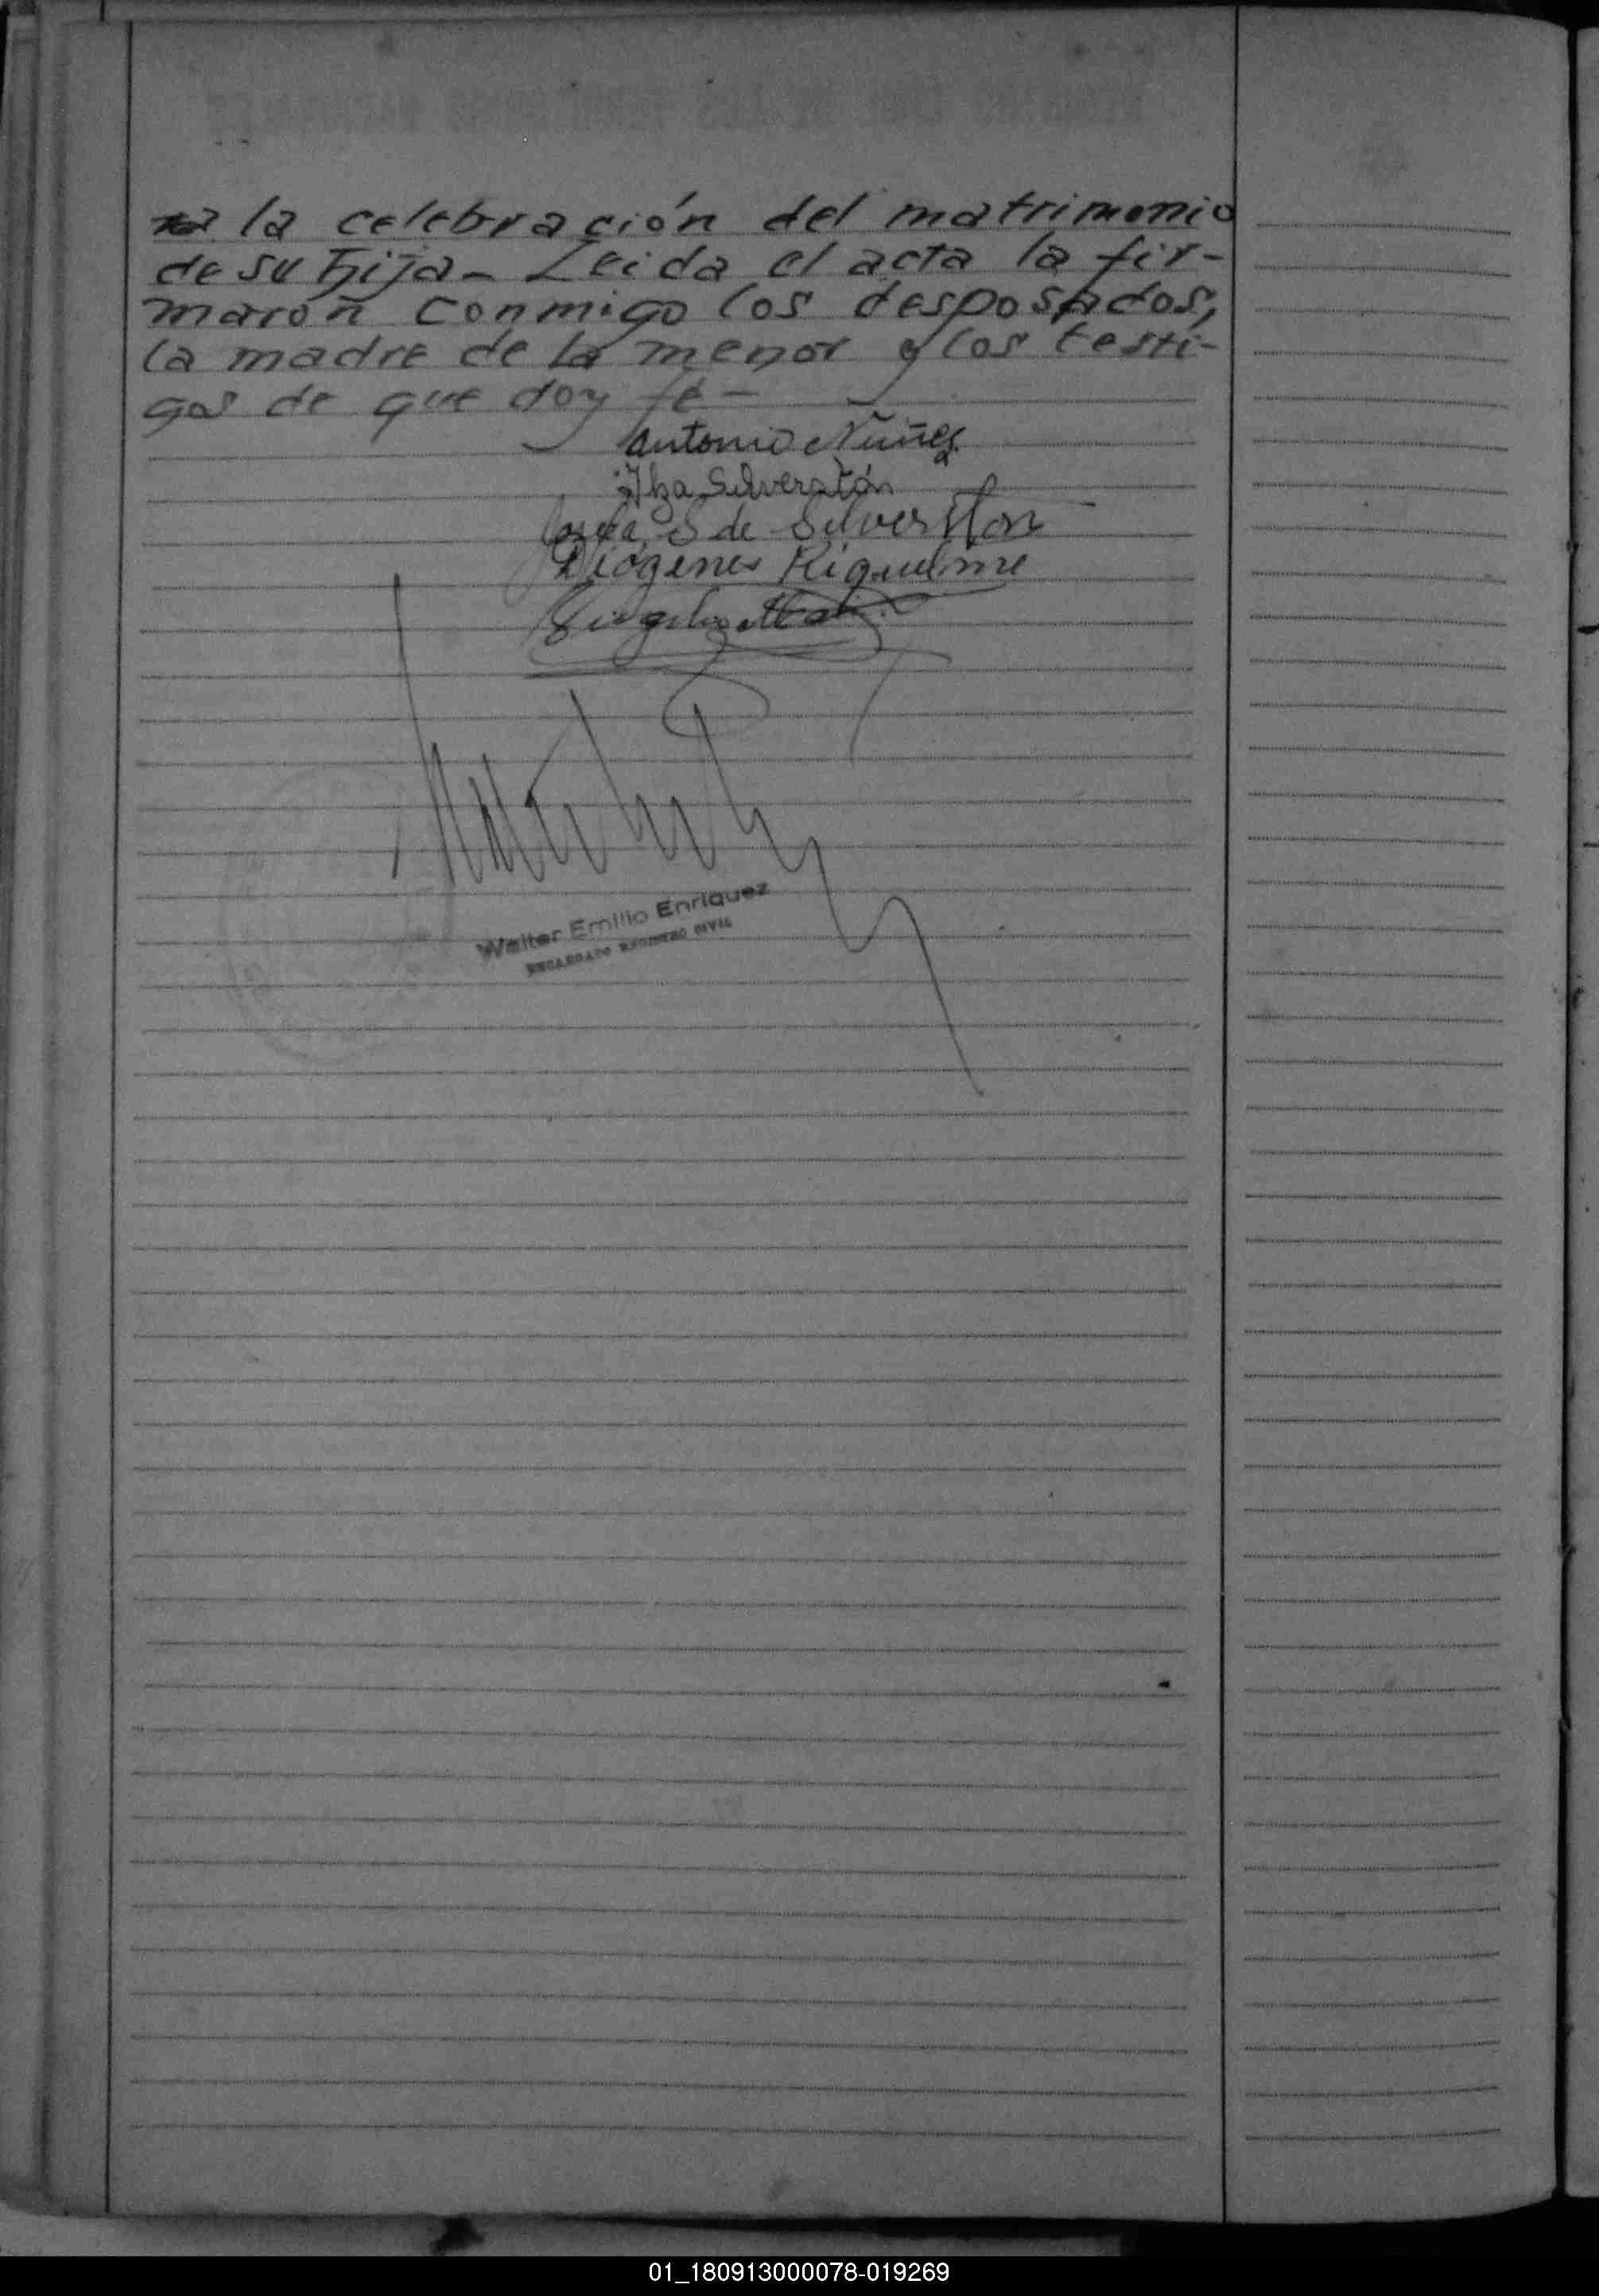 la celebración del matrimonio
de su hija - Leida el acta la fir-
maron conmigo los desposados,
la madre de la menor y los testi-
gos de que doy fé -
Antonio Nuñez
Ilza Silverstón
Josefa S de Silverston
Diógenes Riquelme
Walter Emilio Enriquez
ENCARGADO REGISTRO CIVIL
01_180913000078-019269